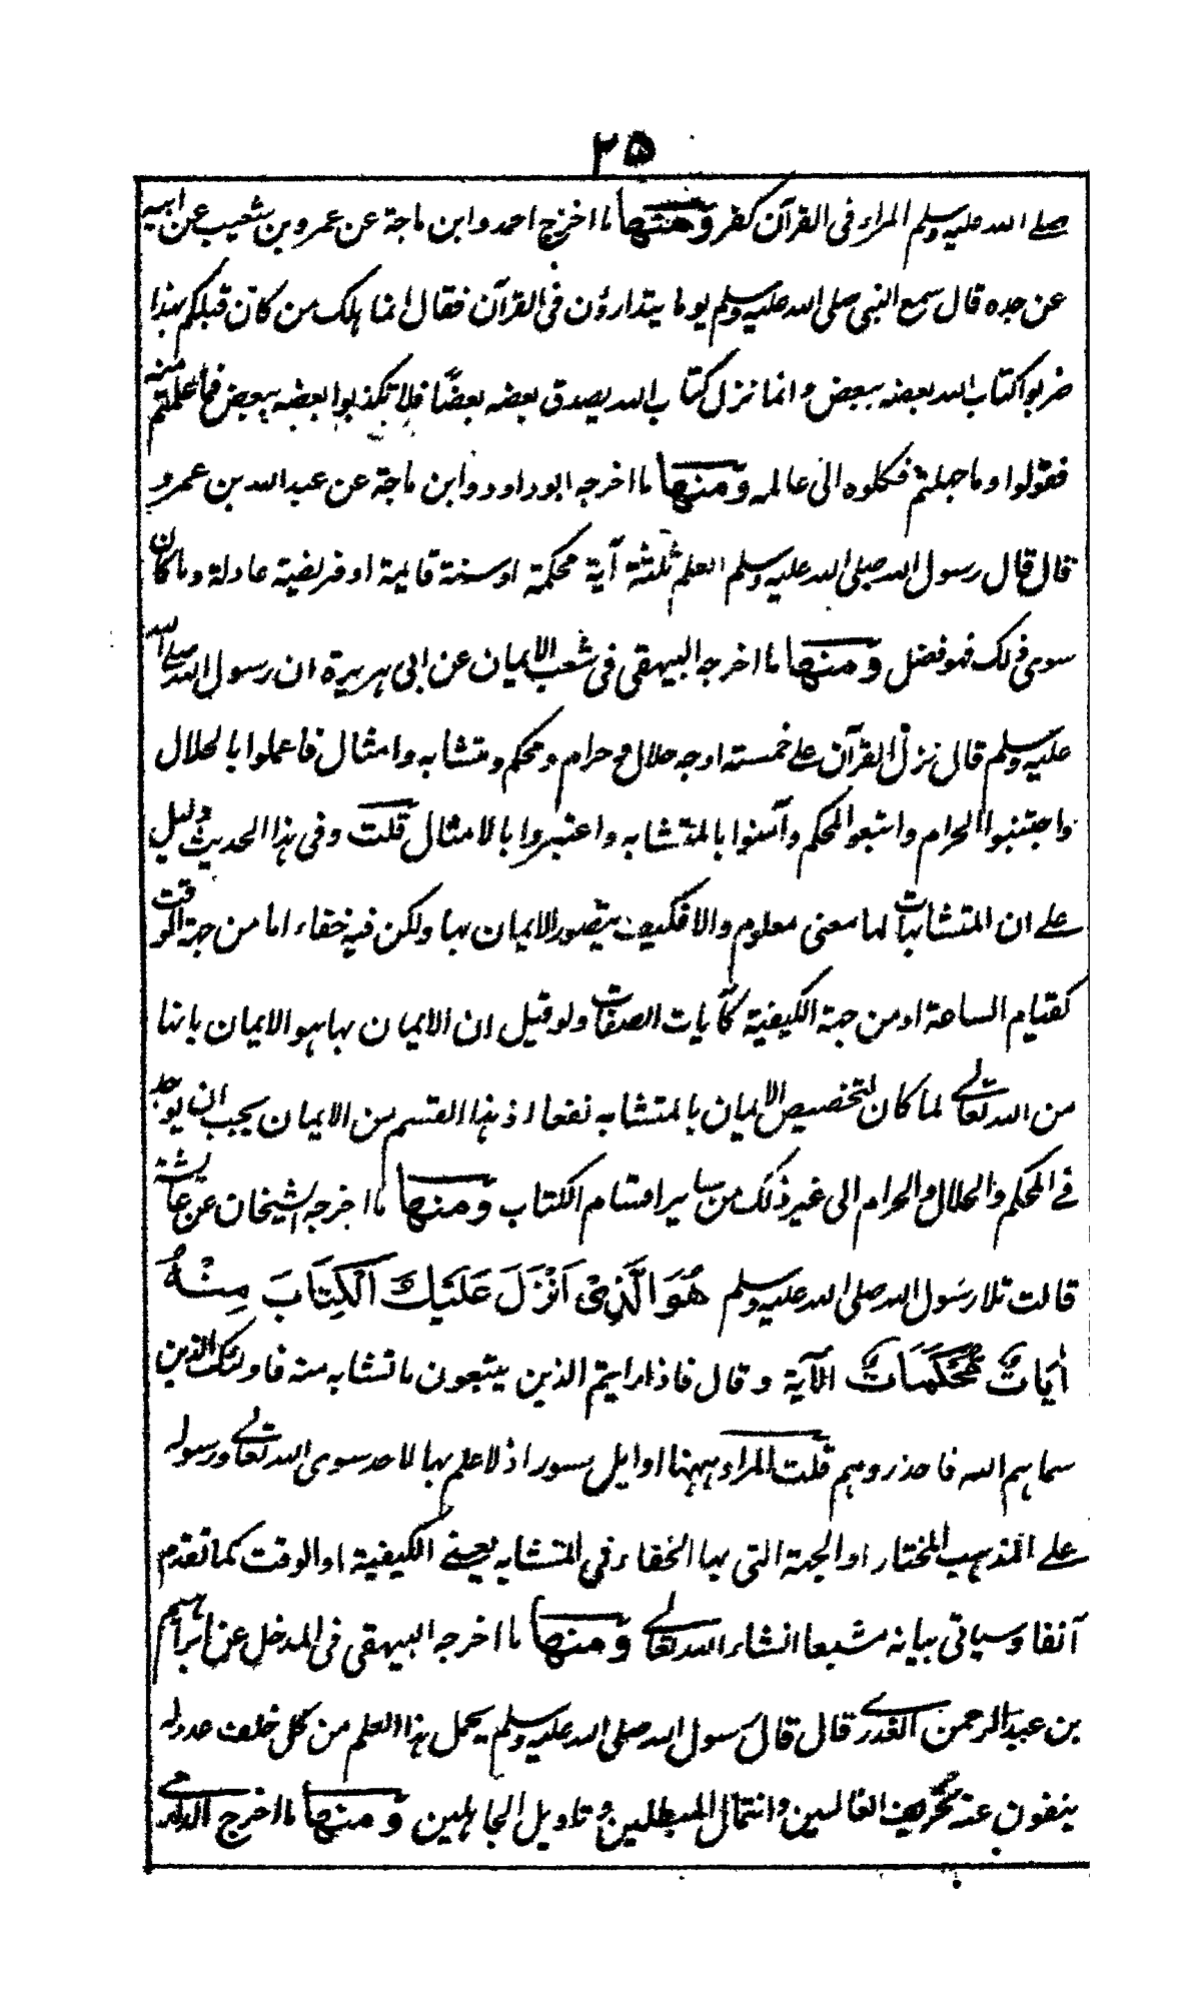 ٢٥
صلے الله عليه وسلم المراء فى القرآن كفر ومنها ما اخرج احمد وابن ماجة عن عمرو بن شعيب عن ابيه
عن جده قال سمع النبى صلى الله عليه وسلم يوما يتدارؤن فى القرآن فقال انما هلك من كان قبلكم بهذا
ضربوا كتاب الله بعضه ببعض وانما نزل كتاب الله يصدق بعضه بعضًا فلا تكذبوا بعضه ببعض فما علمتم منه
فقولوا وما جهلتم فكلوه الى عالمه ومنها ما اخرجه ابو داود وابن ماجة عن عبد الله بن عمرو
قال قال رسول الله صلى الله عليه وسلم العلم ثلثة آية محكمة او سنة قايمة او فريضة عادلة وما كان
سوى ذلك فهو فضل ومنها ما اخرجه البيهقى فى شعب الايمان عن ابى هريرة ان رسول الله صلے الله
عليه وسلم قال نزل القرآن علے خمسته اوجه حلال وحرام ومحكم ومتشابه وامثال فاعملوا بالحلال
واجتنبوا الحرام واتبعوا المحكم وآمنوا بالمتشابه واعتبروا بالامثال قلت وفى هذا الحديث دليل
علے ان المتشابهات لها معنى معلوم والا فكيف يتصور الايمان بها ولكن فيه خفاء اما من جهة الوقت
كقيام الساعة او من جهة الكيفية كآيات الصفات ولو قيل ان الايمان بها هو الايمان بانها
من الله تعالے لما كان لتخصيص الايمان بالمتشابه نفعا اذ هذا القسم من الايمان يجب ان يوجد
فے المحكم والحلال والحرام الى غير ذلك من ساير اقسام الكتاب ومنها ما اخرجه الشيخان عن عائشة
قالت تلا رسول الله صلى الله عليه وسلم هُوَ الَّذِىْ اَنْزَلَ عَلَيْكَ الْكِتَابَ مِنْهُ
اٰيَاتٌ مُّحْكَمَاتٌ الآية وقال فاذا رايتم الذين يتبعون ما تشابه منه فاولئك الذين
سماهم الله فاحذروهم قلت المراد ههنا اوايل سور اذ لا علم بها لاحد سوى الله تعالے ورسوله
علے المذهب المختار او الجهة التى بها الخفاء فى المتشابه يعنے الكيفية او الوقت كما تقدم
آنفا وسياتى بيانه مشبعا انشاء الله تعالے ومنها ما اخرجه البيهقى فى المدخل عن ابراهيم
بن عبد الرحمن العذرے قال قال رسول الله صلى الله عليه وسلم يحمل هذا العلم من كل خلف عدوله
ينفون عنه تحريف الغالين وانتحال المبطلين وتاويل الجاهلين ومنها ما اخرج الدارمى